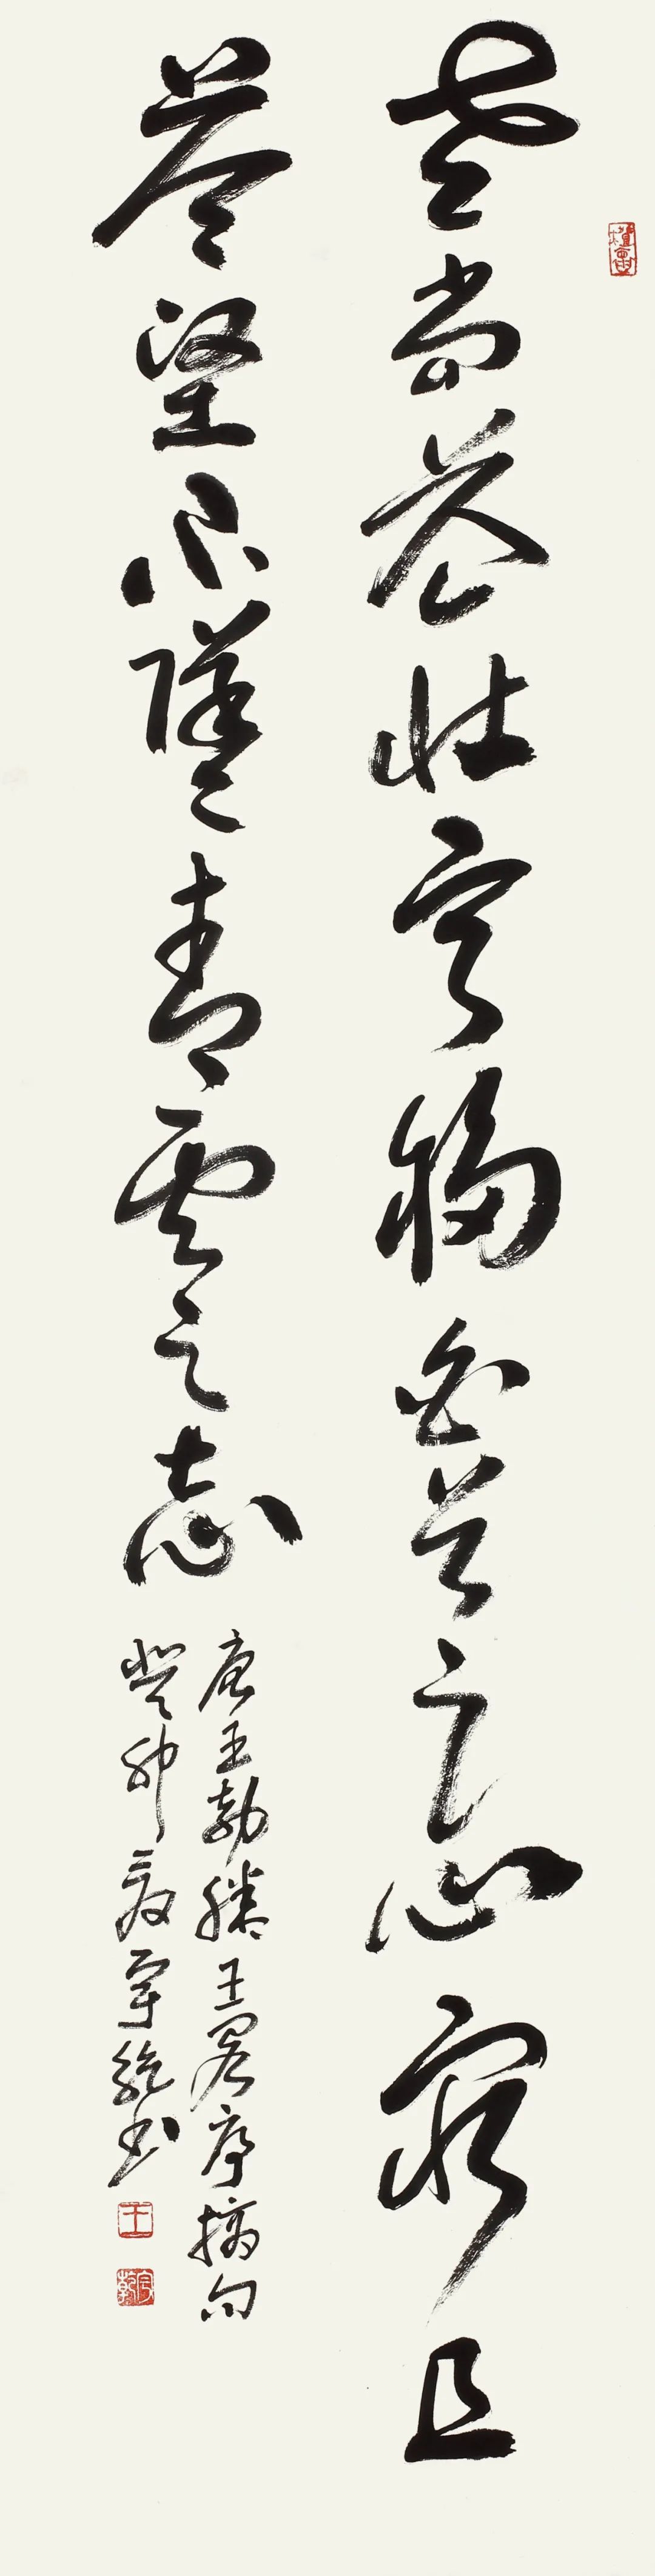 老當益壯寧移白首之心窮且
益堅不墜青雲之志
唐王勃滕王閣序摘句
癸卯夏書
王